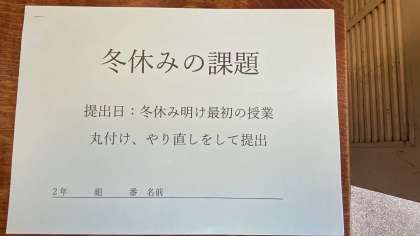 冬休みの課題
提出日：冬休み明け最初の授業
丸付け、やり直しをして提出
2年 組 番 名前